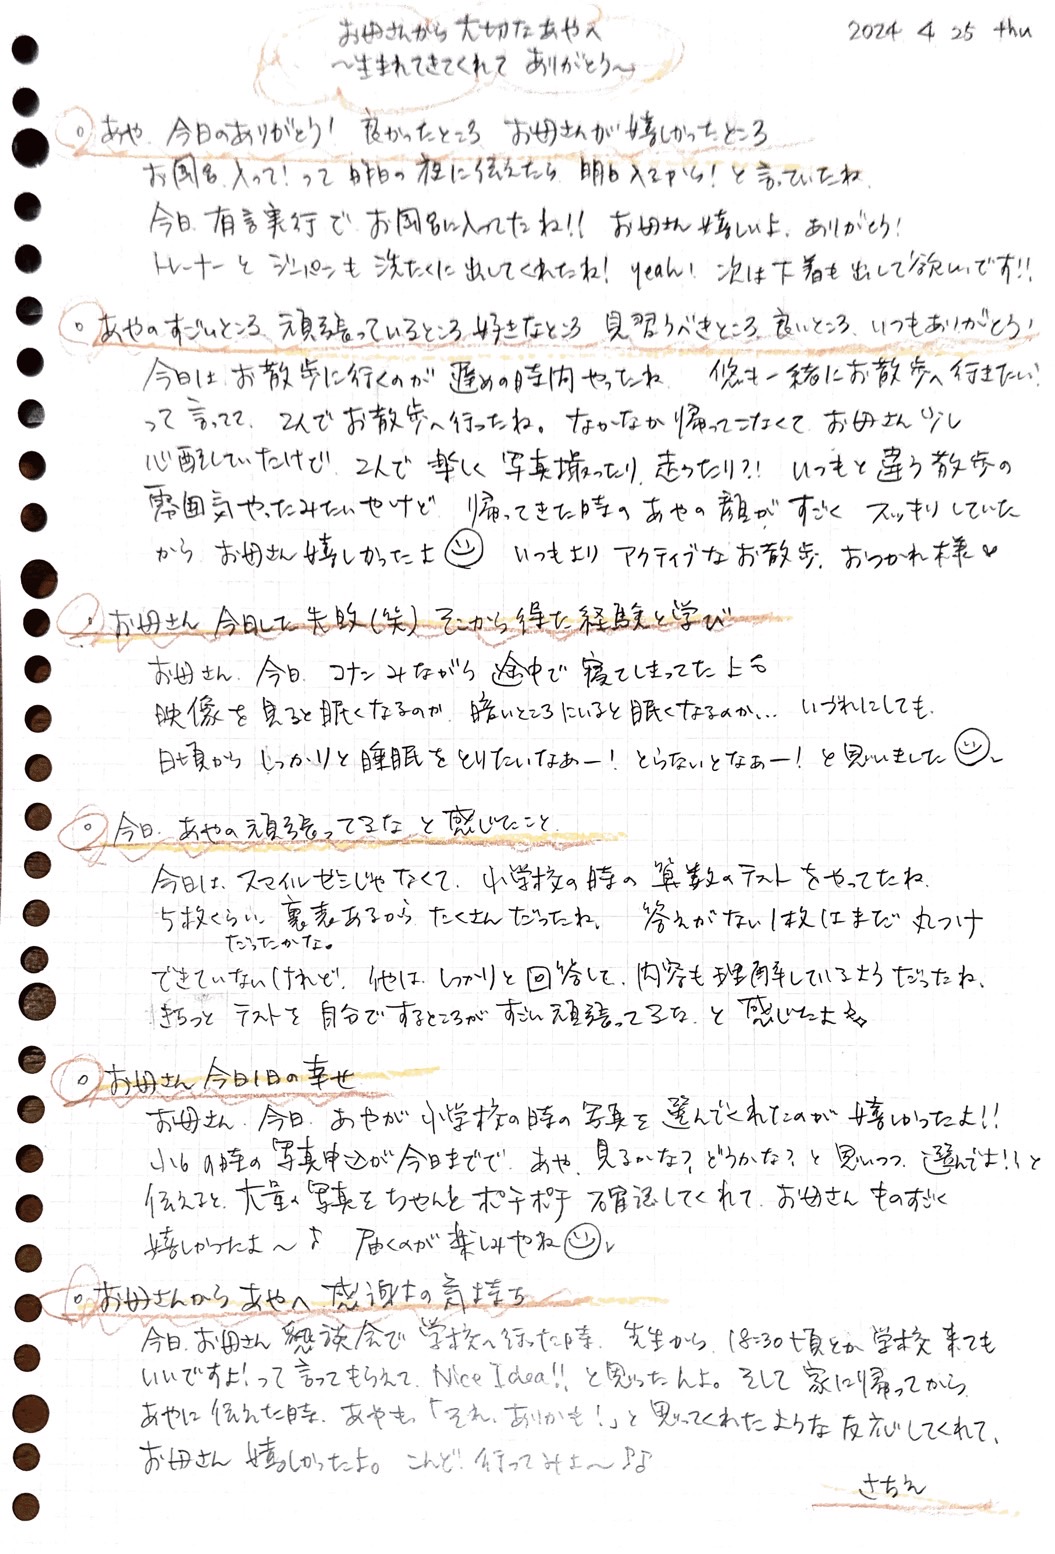 お母さんから大切なあやへ
2024 4 25 thu
〜生まれてきてくれて ありがとう〜
○ あや 今日のありがとう! 良かったところ お母さんが嬉しかったところ
お風呂入って!って昨日の夜に伝えたら 明日入るから!と言っていたね
今日、有言実行でお風呂に入ってたね!! お母さん嬉しいよ、ありがとう!
トレーナーとジーパンも洗たくに出してくれたね! yeah! 次は下着も出して欲しいです!!
○ あやのすごいところ 頑張っているところ 好きなところ 見習うべきところ 良いところ、いつもありがとう!
今日は、お散歩に行くのが遅めの時間やったね 悠も一緒にお散歩へ行きたい!
って言ってて、2人でお散歩へ行ったね。なかなか帰ってこなくて、お母さん少し
心配していたけど、2人で楽しく写真撮ったり、走ったり?! いつもと違う散歩の
雰囲気やったみたいやけど 帰ってきた時のあやの顔がすごくスッキリしていた
から お母さん嬉しかったよ いつもより アクティブなお散歩、おつかれ様♥
○ お母さん 今日した失敗(笑) そこから得た経験と学び
お母さん、今日、コナンみながら途中で寝てしまってたよ
映像を見ると眠くなるのか、暗いところにいると眠くなるのか… いづれにしても、
日頃からしっかりと睡眠をとりたいなあー! とらないとなあー! と思いました
○ 今日、あやの頑張ってるなと感じたこと
今日は、スマイルゼミじゃなくて、小学校の時の算数のテストをやってたね、
5枚くらい 裏表あるから たくさんだったね、 答えがない1枚はまだ丸つけ
だったかな。
できていないけれど、他は、しっかりと回答して、内容も理解しているようだったね、
きちっと テストを自分でするところがすごい頑張ってるな、と感じたよ
○ お母さん 今日1日の幸せ
お母さん、今日、あやが小学校の時の写真を選んでくれたのが嬉しかったよ!!
小6の時の写真申込が今日までで、あや、見るかな?どうかな?と思いつつ、選んでよ!と
伝えると、大量の写真をちゃんとポチポチ確認してくれて、お母さんものすごく
嬉しかったよ〜♪ 届くのが楽しみやね
○ お母さんから あやへ 感謝の気持ち
今日、お母さん 懇談会で学校へ行った時、先生から、18:30頃とか学校来ても
いいですよ!って言ってもらえて、Nice Idea!! と思ったんよ。そして家に帰ってから
あやに伝えた時、あやも、「それ、ありかも!」と思ってくれたような反応してくれて、
お母さん嬉しかったよ。こんど!行ってみよ〜♪♪
さちえ